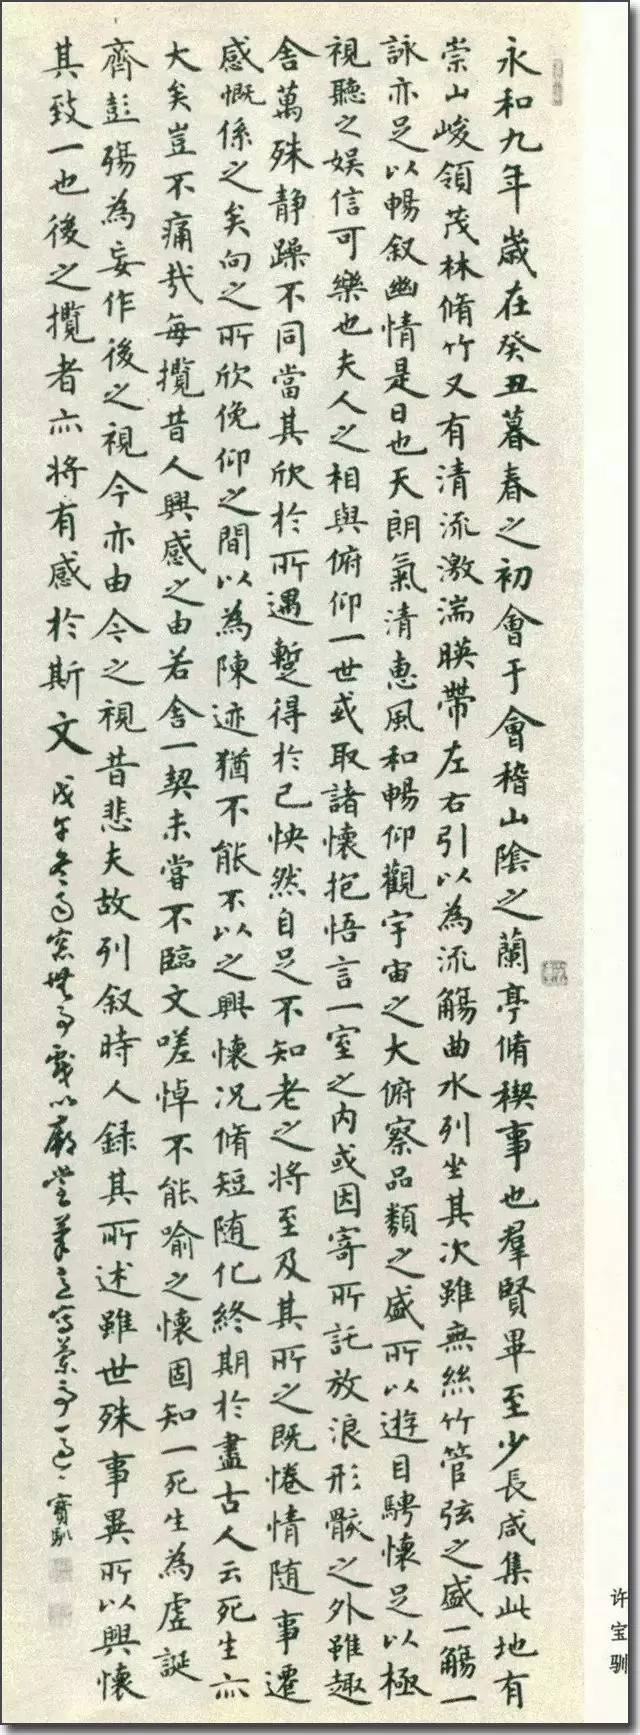 永和九年歲在癸丑暮春之初會于會稽山陰之蘭亭脩稧事也羣賢畢至少長咸集此地有
崇山峻領茂林脩竹又有清流激湍暎帶左右引以為流觴曲水列坐其次雖無絲竹管弦之盛一觴一
詠亦足以暢叙幽情是日也天朗氣清惠風和暢仰觀宇宙之大俯察品類之盛所以遊目騁懷足以極
視聽之娛信可樂也夫人之相與俯仰一世或取諸懷抱悟言一室之內或因寄所託放浪形骸之外雖趣
舍萬殊静躁不同當其欣於所遇蹔得於己怏然自足不知老之將至及其所之既惓情随事遷
感慨係之矣向之所欣俛仰之間以為陳迹猶不能不以之興懷况脩短随化終期於盡古人云死生亦
大矣豈不痛哉每攬昔人興感之由若舍一契未嘗不臨文嗟悼不能喻之懷固知一死生為虛誕
齊彭殤為妄作後之視今亦由今之視昔悲夫故列叙時人錄其所述雖世殊事異所以興懷
其致一也後之攬者亦將有感於斯文 戊午冬窓無事戲以廟堂筆意寫蘭亭一過 寶馴
许宝驯